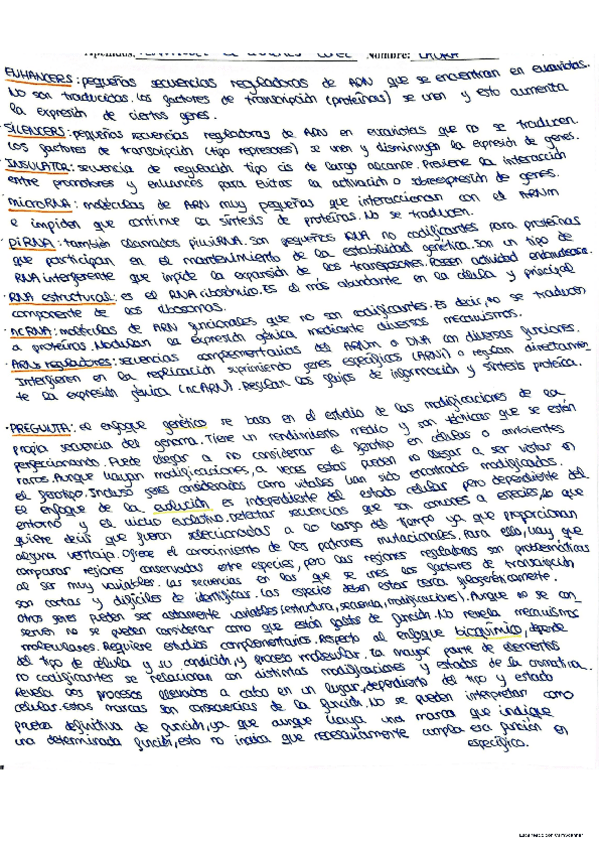 Nombre: LAURA
ENHANCERS: pequeñas secuencias reguladoras de ADN que se encuentran en eucariotas.
No son traducidas. Los factores de transcripción (proteínas) se unen y esto aumenta
la expresión de ciertos genes.
SILENCERS: pequeñas secuencias reguladoras de ADN en eucariotas que no se traducen.
Los factores de transcripción (tipo represores) se unen y disminuyen la expresión de genes.
INSULATOR: secuencia de regulación tipo cis de largo alcance. Previene la interacción
entre promotores y enhancers para evitar la activación o sobreexpresión de genes.
· MICRORNA: moléculas de ARN muy pequeñas que interaccionan con el ARNm
e impiden que continúe la síntesis de proteínas. No se traducen.
· PIRNA: también llamados piwiRNA. Son pequeños RNA no codificantes para proteínas
que participan en el mantenimiento de la estabilidad genética. Son un tipo de
RNA interferente que impide la expansión de los transposones. Poseen actividad endonucleasa.
· RNA estructural: es el RNA ribosómico. Es el más abundante en la célula y principal
componente de los ribosomas.
· ncRNA: moléculas de ARN funcionales que no son codificantes. Es decir, no se traducen
a proteínas. Modulan la expresión génica mediante diversos mecanismos.
· ARNs reguladores: secuencias complementarias del ARNm o DNA con diversas funciones.
Interfieren en la replicación suprimiendo genes específicos (ARNi) o regulan directamen-
te la expresión génica (ncARN). Regulan los flujos de información y síntesis proteica.
· PREGUNTA: el enfoque genético se basa en el estudio de las modificaciones de la
propia secuencia del genoma. Tiene un rendimiento medio y son técnicas que se están
perfeccionando. Puede llegar a no considerar el fenotipo en células o ambientes
raros. Aunque hayan modificaciones, a veces estas pueden no llegar a ser vistas en
el fenotipo. Incluso genes considerados como vitales han sido encontrados modificados.
El enfoque de la evolución es independiente del estado celular pero dependiente del
entorno y el nicho evolutivo. Detectar secuencias que son comunes a especies, lo que
quiere decir que fueron seleccionadas a lo largo del tiempo ya que proporcionan
alguna ventaja. Ofrece el conocimiento de los patrones mutacionales. Para ello, hay que
comparar regiones conservadas entre especies, pero las regiones reguladoras son problemáticas
al ser muy variables. Las secuencias en las que se unen los factores de transcripción
son cortas y difíciles de identificar. Las especies deben estar cerca filogenéticamente.
otros genes pueden ser altamente variables (estructura, secuencia, modificaciones). Aunque no se con-
serven no se pueden considerar como que están faltos de función. No revela mecanismos
moleculares. Requiere estudios complementarios. Respecto al enfoque bioquímico, depende
del tipo de célula y su condición, y proceso molecular. La mayor parte de elementos
no codificantes se relacionan con distintas modificaciones y estados de la cromatina.
Revela los procesos llevados a cabo en un lugar, dependiente del tipo y estado
celular. Estas marcas son consecuencias de la función. No se pueden interpretar como
prueba definitiva de función, ya que aunque haya una marca que indique
una determinada función, esto no indica que necesariamente cumpla esa función en
específico.